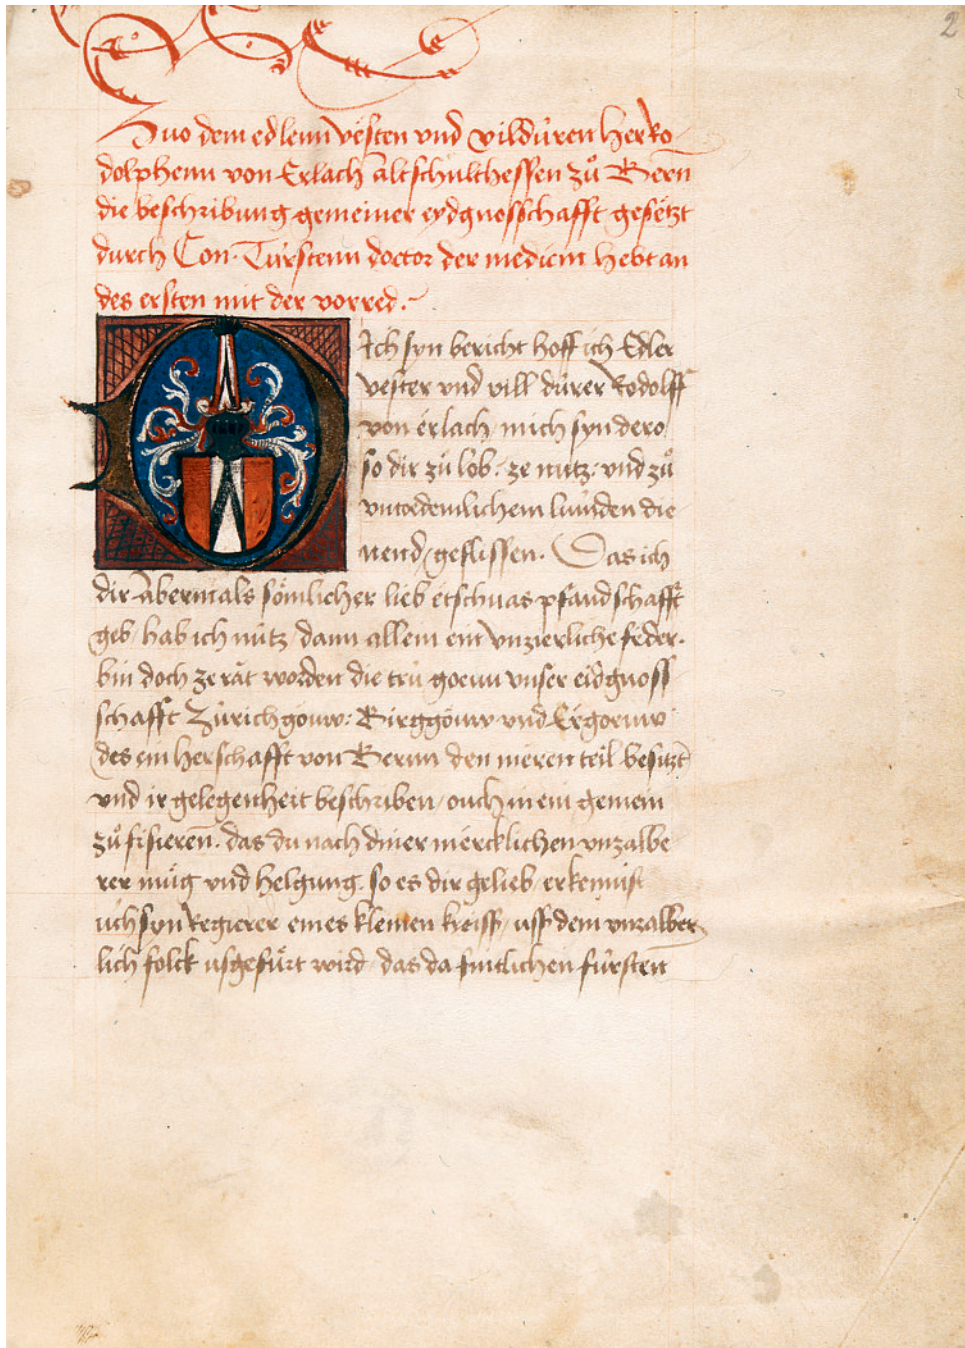 2
Zuo dem edlenn vesten vnd vildúren Her Ro
dolphenn von Erlach altschulthessen zů Bern̄
die beschribung gemeiner eydgnosschafft gesetzt
durch Con. Túrstenn doctor der medicin hebt an
des ersten mit der vorred.
Ich syn bericht hoff ich Edler
vester vnd vill dúrer Rodolff
von erlach mich syn dero
so dir zů lob. ze nutz. vnd zů
lúnden die
nend geflissen. Das ich
dir Abermals sömlicher lieb etschwas pfandschafft
geb hab ich nútz dann allein ein vnzierliche feder.
bin doch ze rät worden die trú goenn vnser eidgnoss
schafft Zúrichgöuw: Birggöuw vnd Ergoeuw
des ein herschafft von Bernn den meren teil besitzt
vnd ir gelegenheit beschriben ouch in ein gemein
zů fisieren. das du nach diner mercklichen vnzalbe
rer můg vnd helgung. so es dir gelieb erkennist
úch syn Regierer eines kleinen kreiss uss dem vnzalber
lich folck usgefúrt wird das da fúrsten